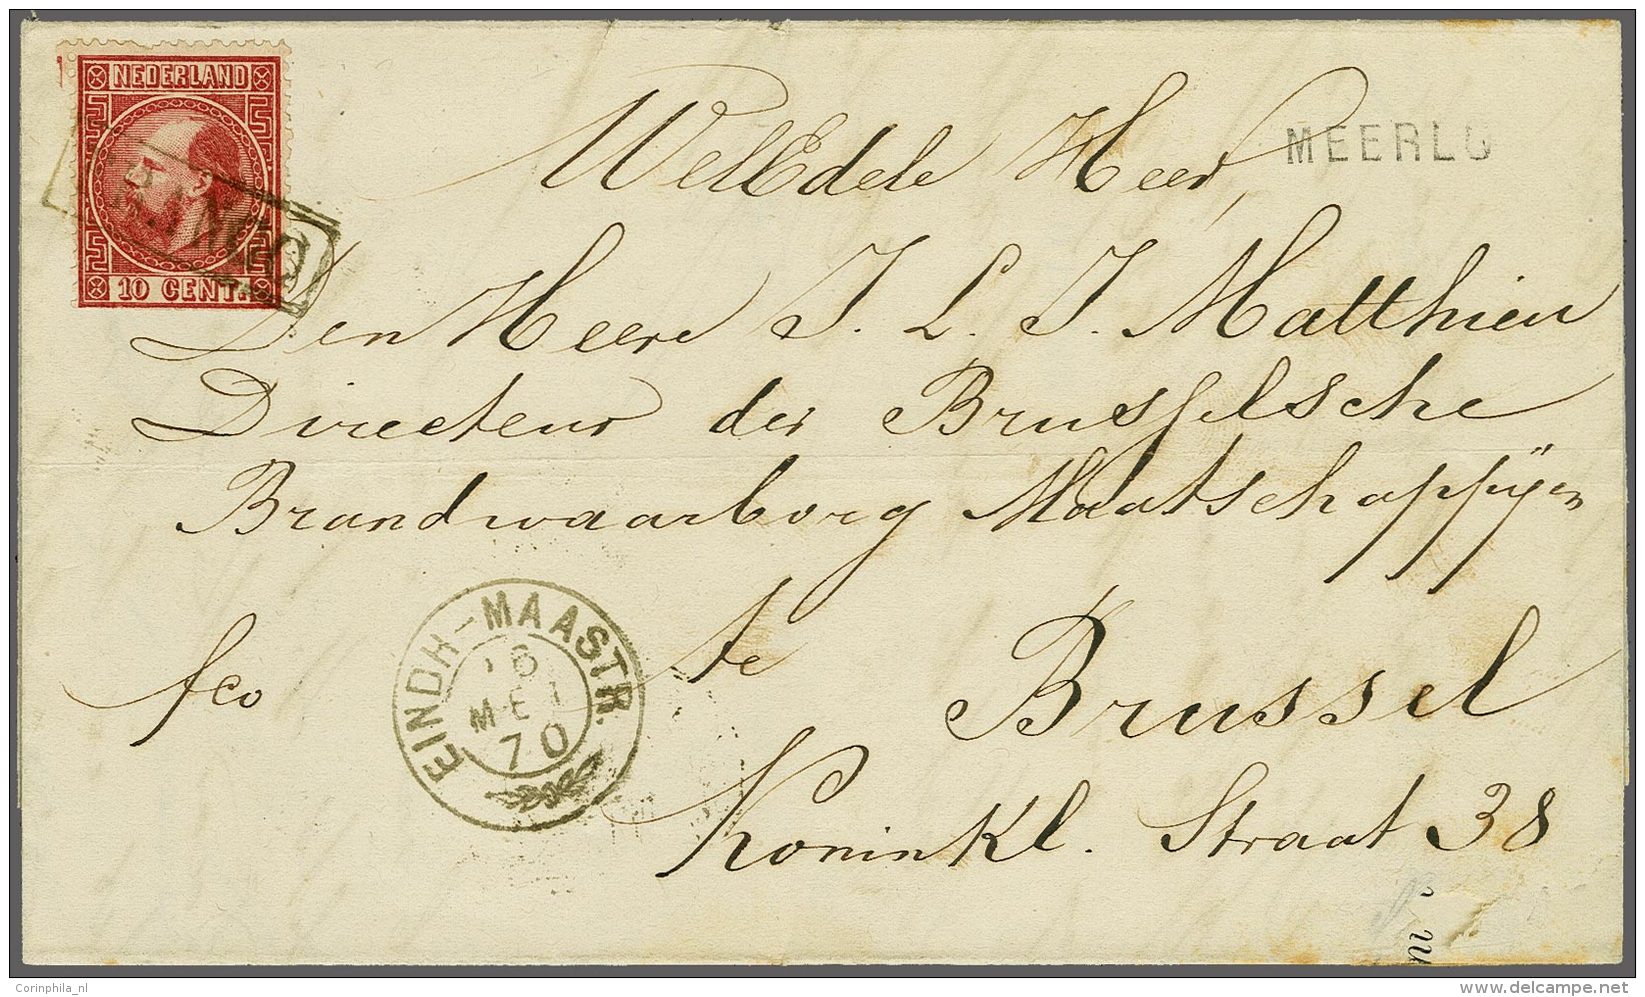 NEDERLAND
10 CENT.
FRANCO
MEERLO
WelEdele Heer,
Den Heere J. L. J. Matthieu
Directeur der Brusselsche
Brandwaarborg Maatschappÿen
te
fco
Brussel
Koninkl. Straat 38
EINDH-MAASTR.
16
MEI
70
Corinphila_nl
www.delcampe.net